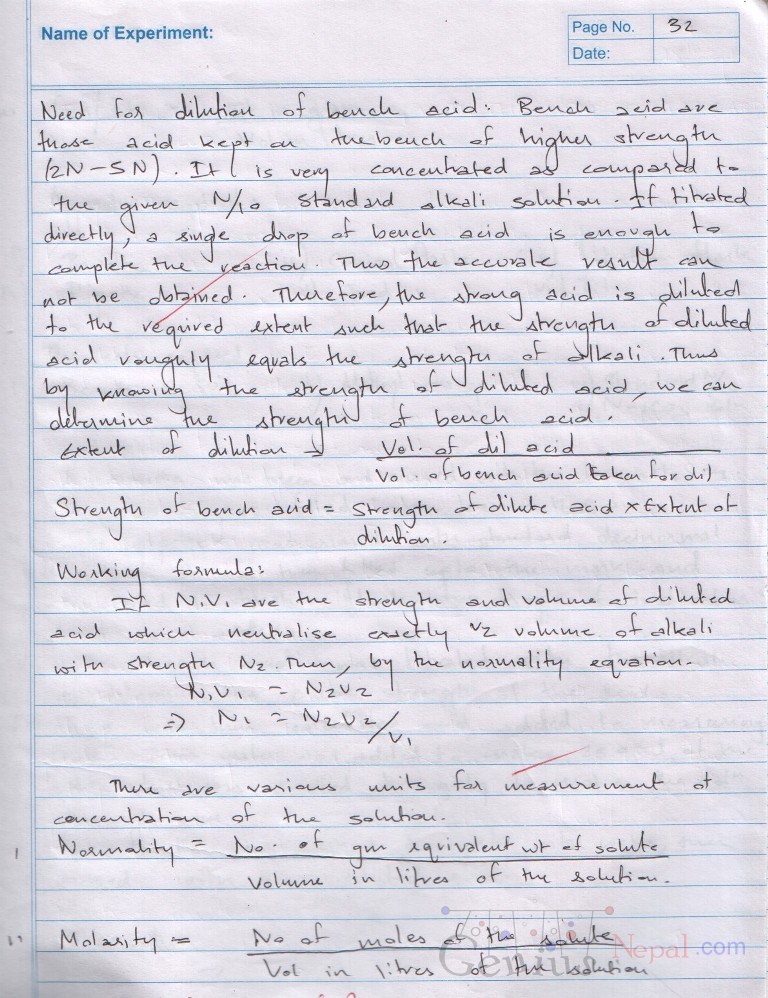 Name of Experiment:
Page No. 32
Date:
Need for dilution of bench acid: Bench acid are
those acid kept on the bench of higher strength
(2N-5N). It is very concentrated as compared to
the given N/10 standard alkali solution. If titrated
directly, a singe drop of bench acid is enough to
complete the reaction. Thus the accurate result can
not be obtained. Therefore, the strong acid is diluted
to the required extent such that the strength of diluted
acid roughly equals the strength of alkali. Thus
by knowing the strength of diluted acid, we can
determine the strength of bench acid.
Extent of dilution → Vol. of dil acid
Vol. of bench acid taken for dil)
Strength of bench acid = Strength of dilute acid × Extent of
dilution.
Working formula:
If N1V1 are the strength and volume of diluted
acid which neutralise exactly V2 volume of alkali
with strength N2. Then, by the normality equation.
N1V1 = N2V2
⇒ N1 = N2V2/V1
There are various units for measurement of
concentration of the solution.
Normality = No. of gm equivalent wt of solute
Volume in litres of the solution.
Molarity = No of moles of the solute
Vol in litres of the solution
Genius Nepal.com